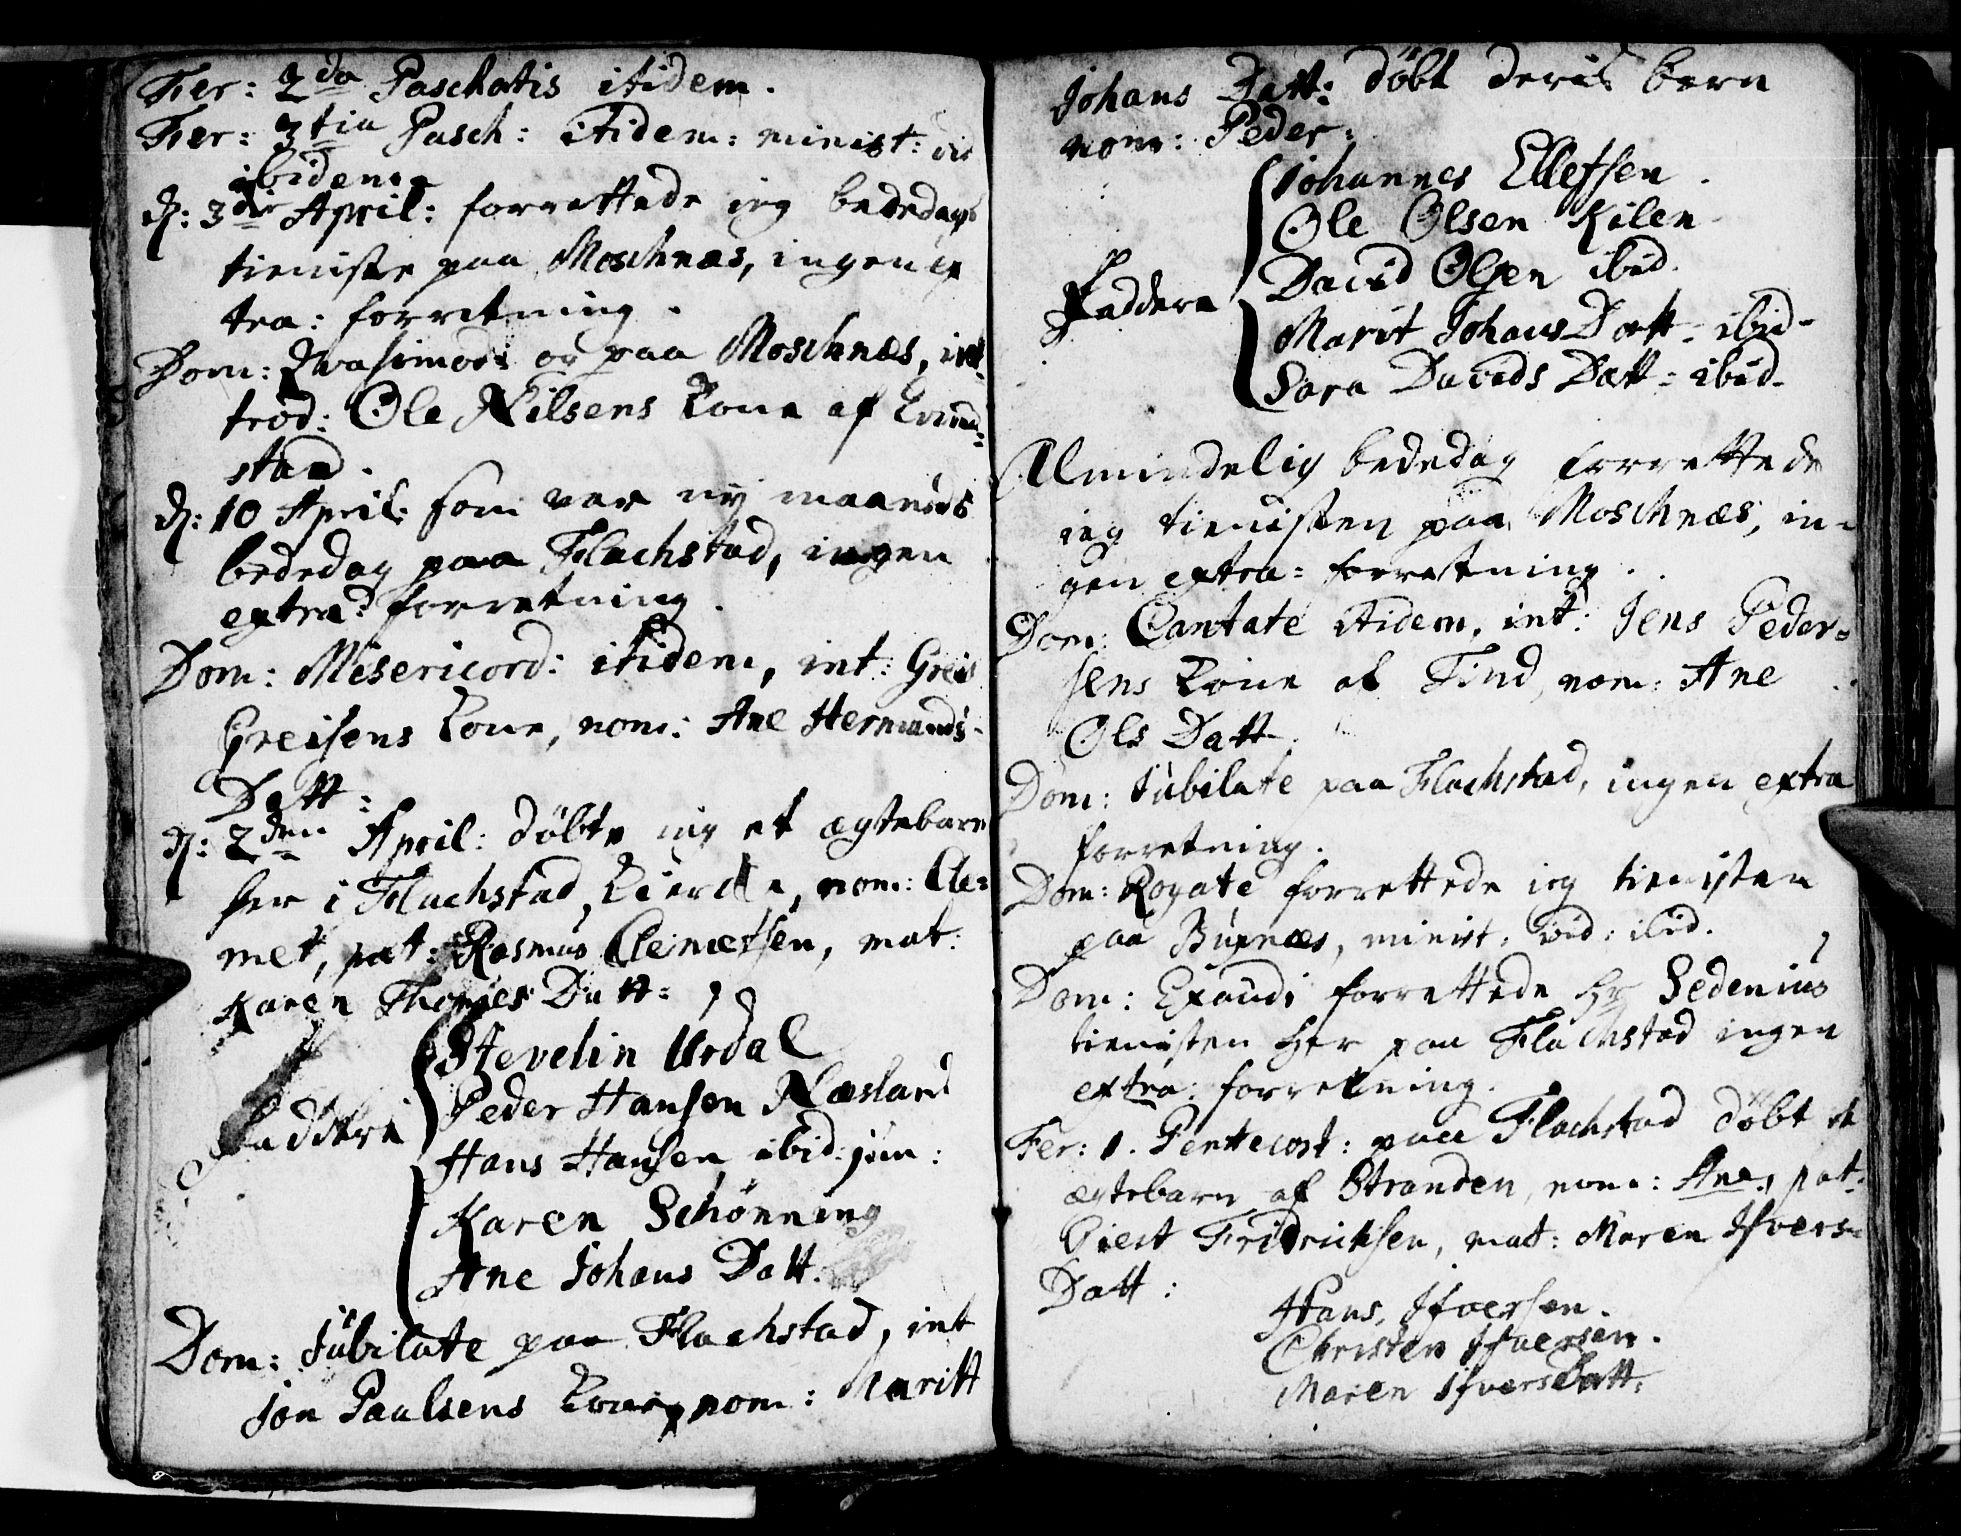 Fer: 2da Paschatis itidem.
Fer: 3tia Pasch: itidem: minist: vid
ibidem.
d: 3die April: forrettede ieg bededags
tieniste paa Moschnæs, ingen ex
tra: forretning.
Dom: Qvasimodi og paa Moschnæs, int
trod: Ole Nilsens Kone af
stad.
d: 10 April: som var ny maaneds
bededag paa Flachstad, ingen
extra: forretning.
Dom: Misericord: itidem, int: Greis
Greisens Kone, nom: Ane Hermands
Datt:
d: 2den April: døbte ieg et ægtebarn
her i Flachstad Kiercke, nom: Cle=
met, pat: Rasmus Clemetsen, mat:
Karen Thomes Datt:
Stevelin Urdal
Peder Hansen Næsland
Faddere
Hans Hansen ibid: jun:
Karen Schønning
Ane Johans Datt.
Dom: Jubilate paa Flachstad, int
Jon Paulsens Kone, nom: Maritt
Johans Datt: døbt deris barn
nom: Peder:
Johannes Ellefsen.
Ole Olsen Kilen
David Olsen ibid.
Faddere
Marit Johans Datt: ibid-
Sara Davids Datt: ibid-
Almindelig bededag forrettede
ieg tienisten paa Moschnæs, in=
gen extra: forretning.
Dom: Cantate itidem, int: Jens Peder=
sens Kone af Find, nom: Ane
Ols Datt.
Dom: Jubilate paa Flachstad, ingen extra
forretning.
Dom: Rogate forrettede ieg tienisten
paa Buxnæs, minist: vid: ibid.
Dom: Exaudi forrettede hr Sedenius
tienisten her paa Flachstad ingen
extra: forretning.
Fer: 1. Pentecost: paa Flachstad døbt et
ægtebarn af Stranden, nom: Ane, pat:
Giert Fridrichsen, mat: Maren Ifvers=
Datt:
Hans, Ifversen.
Christen Ifversen.
Maren Ifvers Datt: